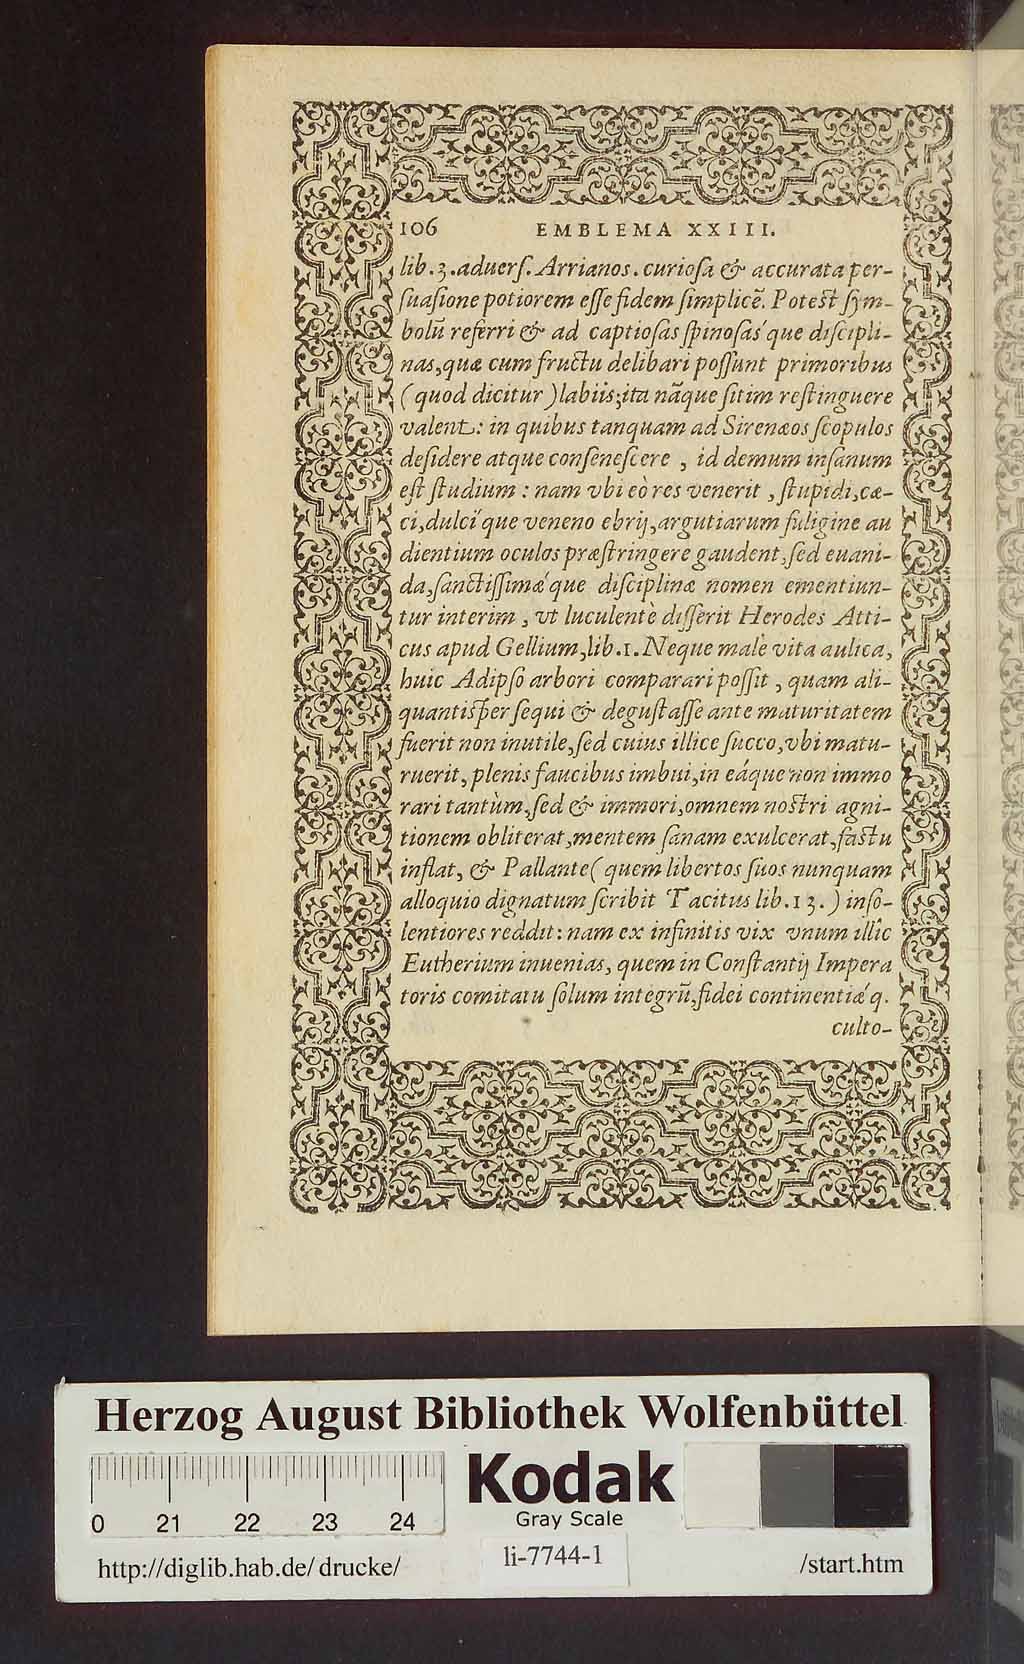 106 EMBLEMA XXIII.
lib.3.aduerſ. Arrianos. curioſa & accurata per-
ſuaſione potiorem eſſe fidem ſimplicē. Poteſt ſym-
bolū referri & ad captioſas ſpinoſaśque diſcipli-
nas, quæ cum fructu delibari poſſunt primoribus
( quod dicitur ) labiis; ita nāque ſitim reſtinguere
valent: in quibus tanquam ad Sirenæos ſcopulos
deſidere atque conſeneſcere , id demum inſanum
eſt ſtudium : nam vbi eò res venerit , ſtupidi, cæ-
ci, dulci´que veneno ebrij, argutiarum fuligine au
dientium oculos præſtringere gaudent, ſed euani-
da, ſanctiſſimæ´que diſciplinæ nomen ementiun-
tur interim , vt luculentè diſſerit Herodes Atti-
cus apud Gellium, lib.1. Neque malè vita aulica,
huic Adipſo arbori comparari poſſit , quam ali-
quantiſper ſequi & deguſtaſſe ante maturitatem
fuerit non inutile, ſed cuius illice ſucco, vbi matu-
ruerit, plenis faucibus imbui, in eáque non immo
rari tantùm, ſed & immori, omnem noſtri agni-
tionem obliterat, mentem ſanam exulcerat, faſtu
inflat, & Pallante ( quem libertos ſuos nunquam
alloquio dignatum ſcribit Tacitus lib.13.) inſo-
lentiores reddit: nam ex infinitis vix vnum illîc
Eutherium inuenias, quem in Conſtantij Impera
toris comitatu ſolum integrū, fidei continentiæ´q.
culto-
Herzog August Bibliothek Wolfenbüttel
Kodak
Gray Scale
0 21 22 23 24
li-7744-1
http://diglib.hab.de/ drucke/ /start.htm